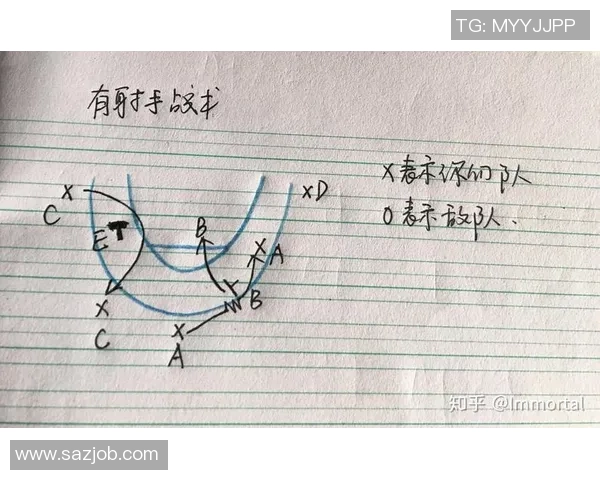 TG: MYYJJPP
有射手战术
X表示你们队
O表示敌队.
X
C
E
X
C
B
X
A
B
X
A
XD
知乎 @Immortal
www.sazjob.com